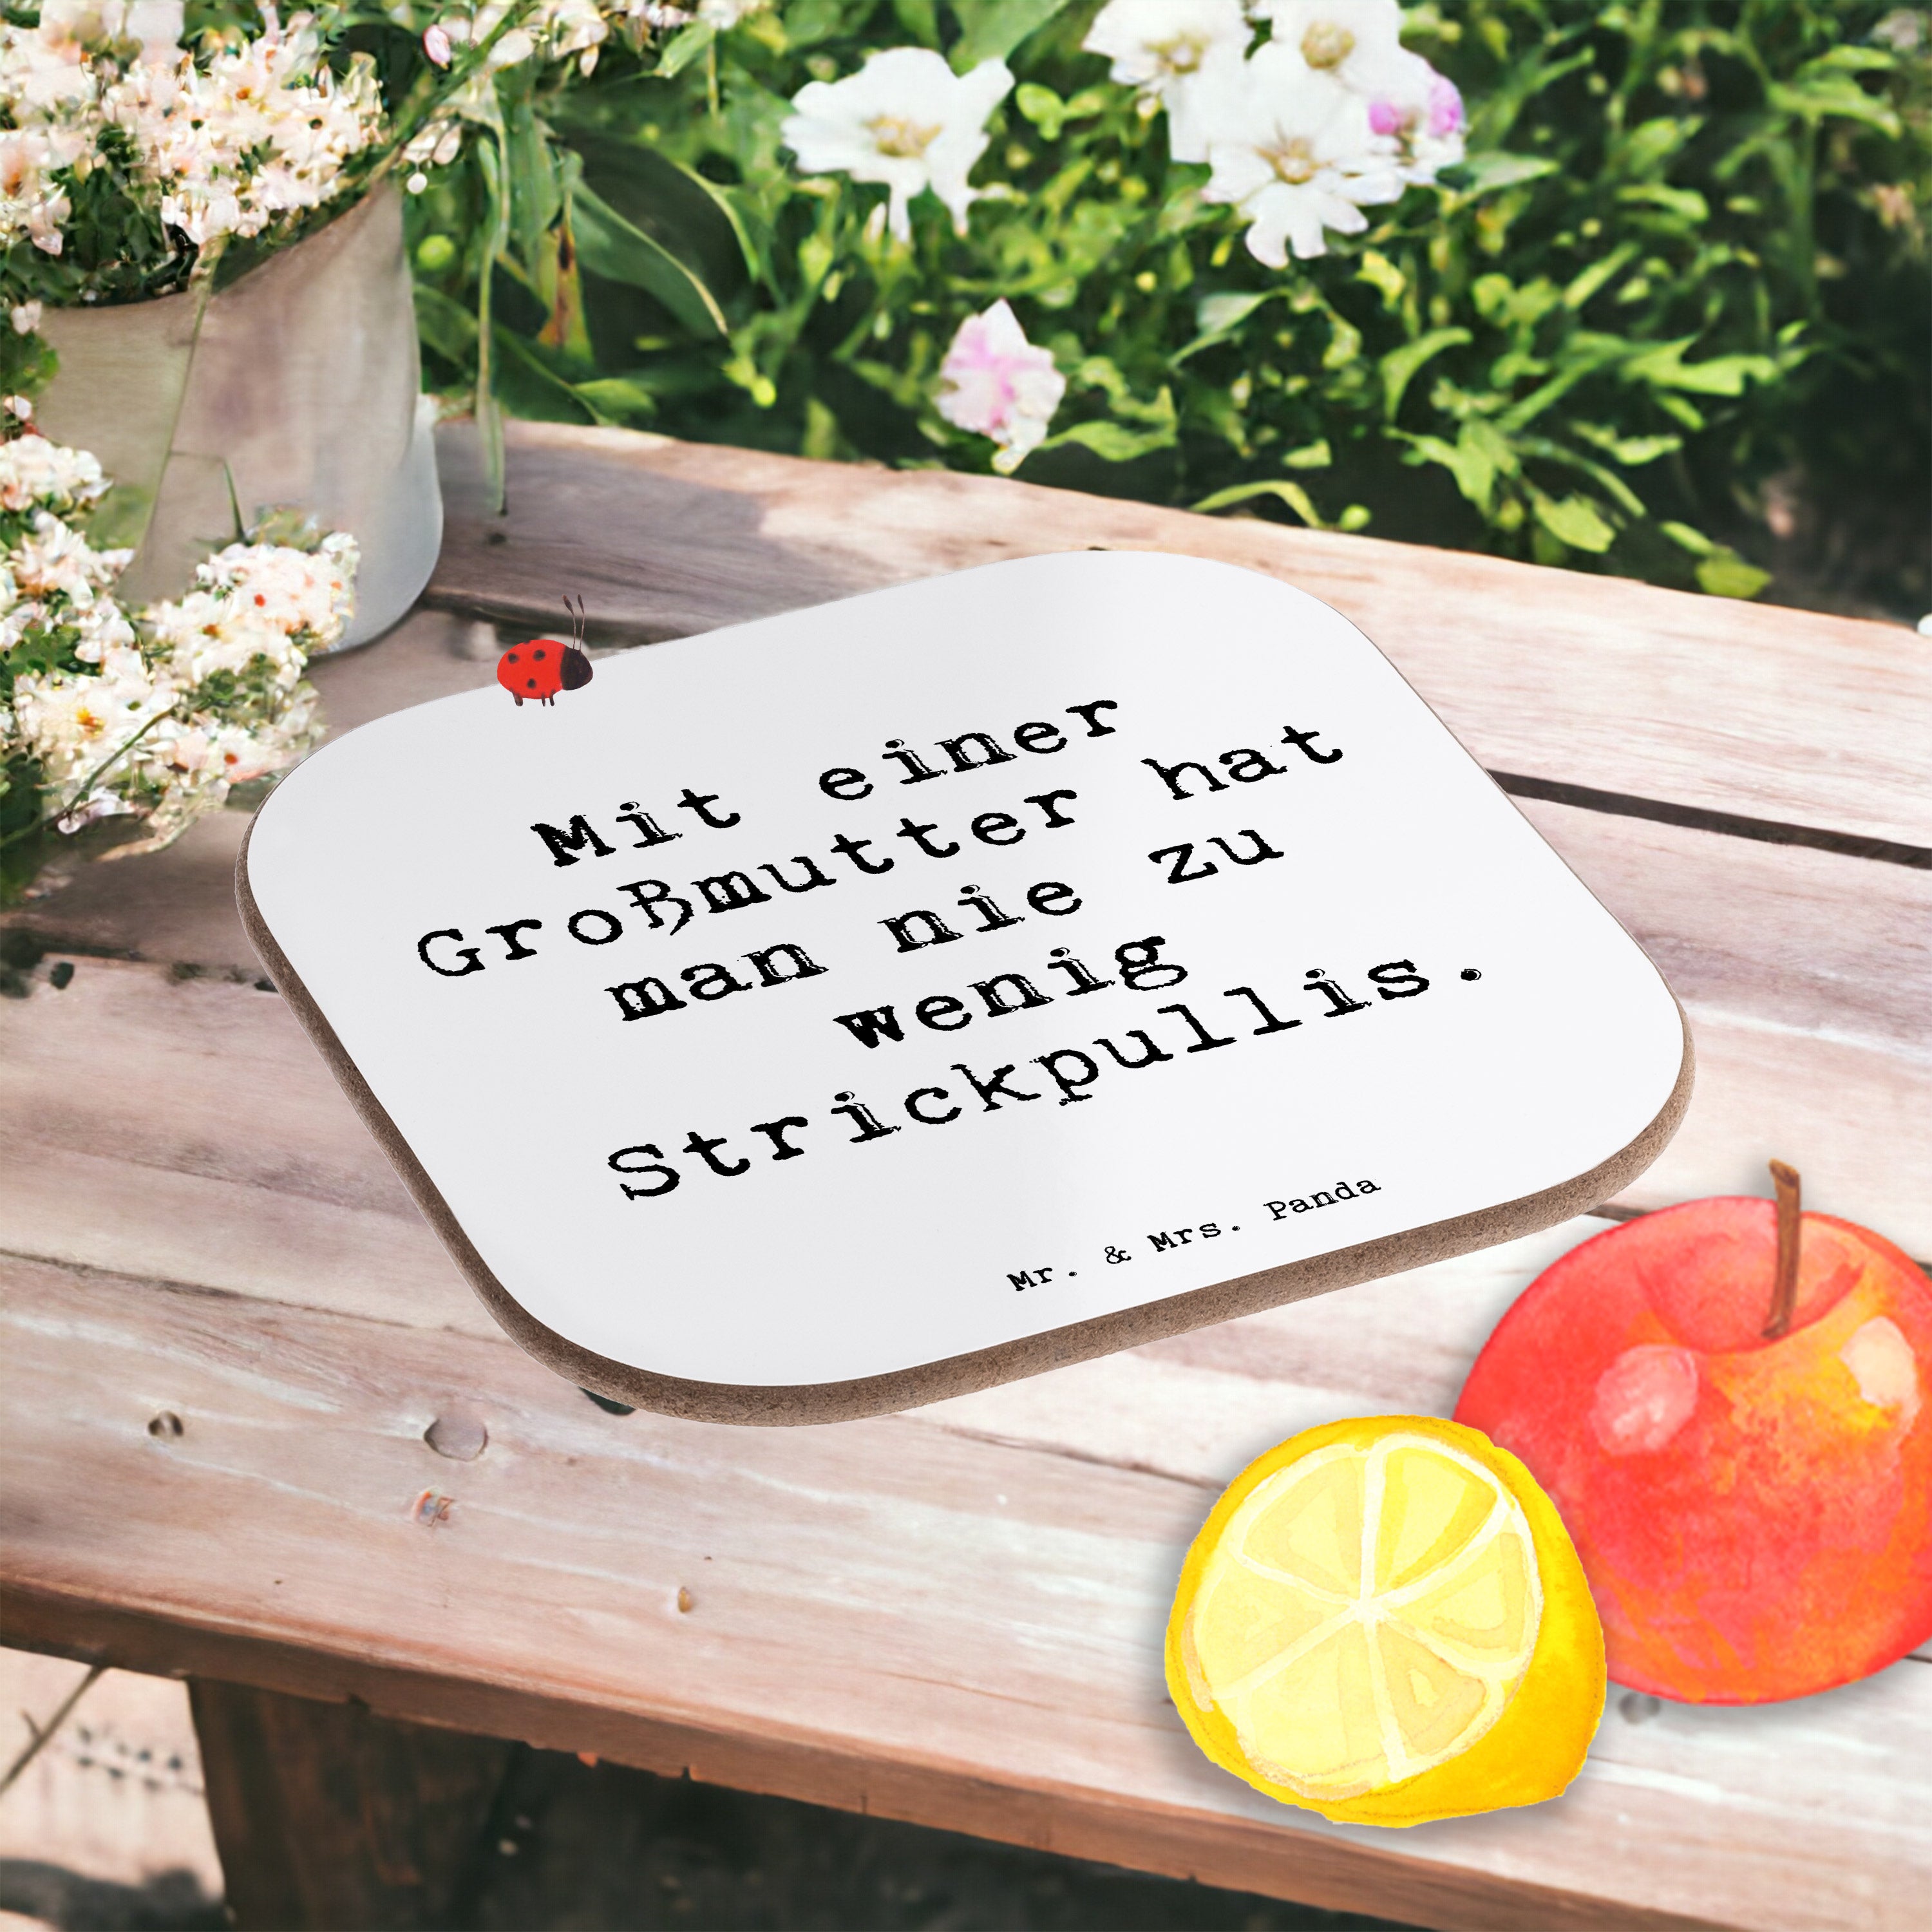 Mit einer
Großmutter hat
man nie zu
wenig
Strickpullis.
Mr. & Mrs. Panda